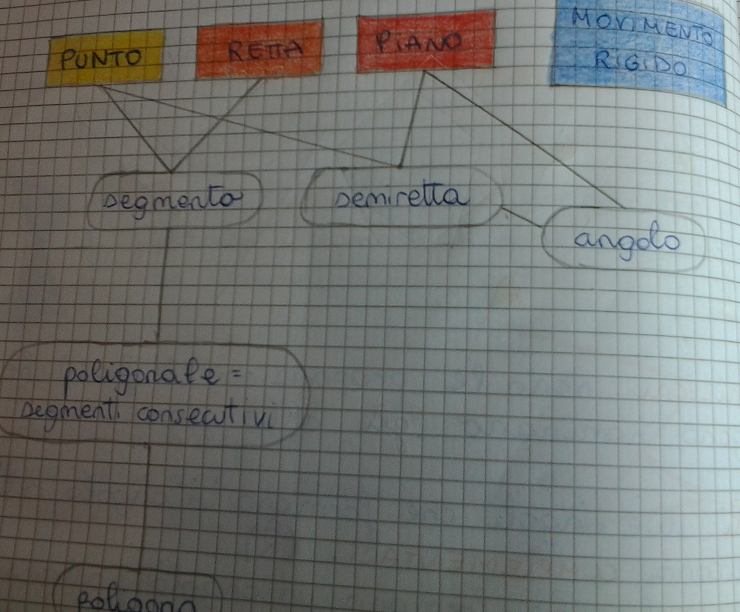 PUNTO
RETTA
PIANO
MOVIMENTO
RIGIDO
segmento
semiretta
angolo
poligonale =
segmenti consecutivi
poligono